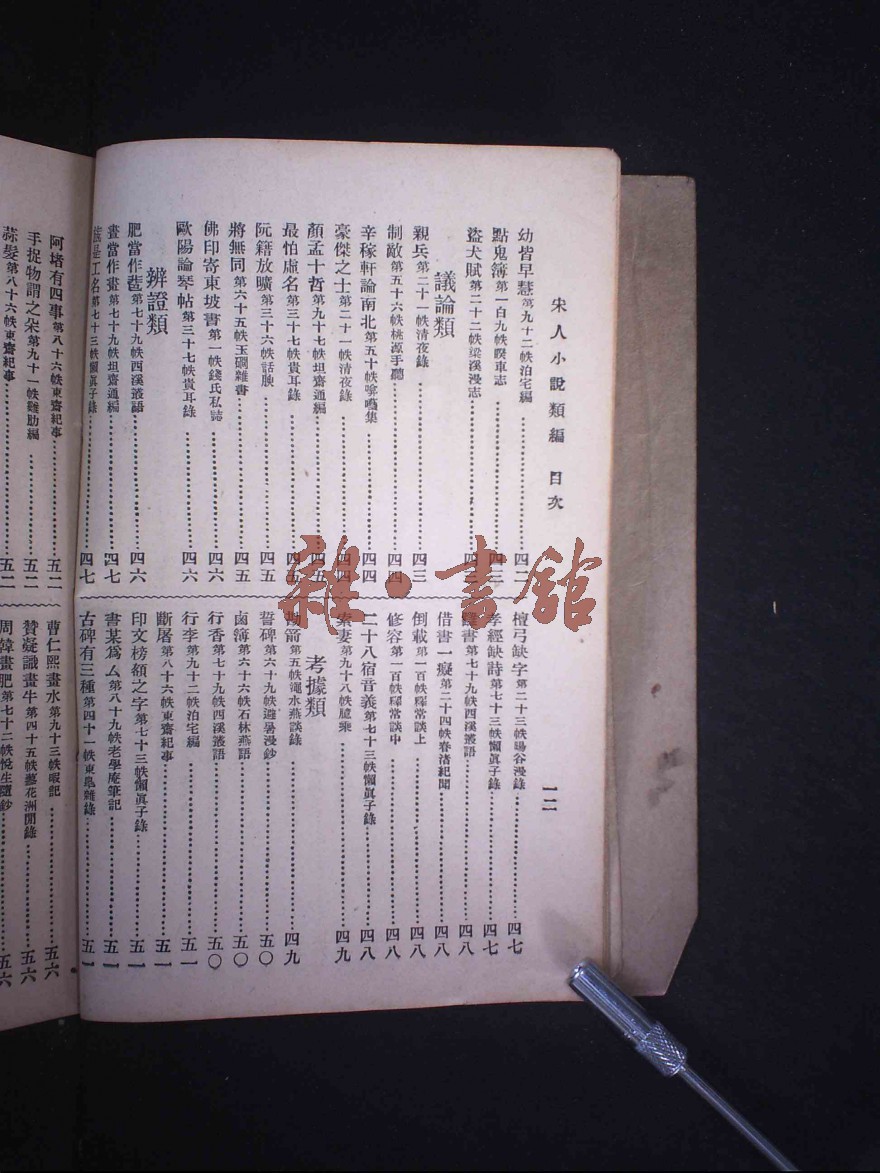 宋人小說類編　目次
一二
幼皆早慧第九十二帙泊宅編……四二
點鬼簿第一百九帙睽車志……四三
盜犬賦第二十二帙梁溪漫志……四三
議論類
親兵第二十一帙清夜錄……四三
制敵第五十六帙桃源手聽……四四
辛稼軒論南北第五十帙……集……四四
豪傑之士第二十一帙清夜錄……四四
顏孟十哲第九十七帙坦齋通編……四五
最怕虛名第三十七帙貴耳錄……四五
阮籍放曠第三十六帙話腴……四五
將無同第六十五帙玉澗雜書……四五
佛印寄東坡書第一帙錢氏私誌……四六
歐陽論琴帖第三十七帙貴耳錄……四六
辨證類
肥當作……第七十九帙西溪叢語……四六
畫當作畫第七十九帙坦齋通編……四七
工名第七十三帙懶眞子錄……四七
檀弓缺字第二十三帙暘谷漫錄……四七
孝經缺詩第七十三帙懶眞子錄……四七
書第七十九帙西溪叢語……四八
借書一癡第二十四帙春渚紀聞……四八
倒載第一百帙釋常談上……四八
修容第一百帙釋常談中……四八
二十八宿音義第七十三帙懶眞子錄……四八
妻第九十八帙臆乘……四九
考據類
箭第五帙澠水燕談錄……四九
誓碑第六十九帙避暑漫鈔……五〇
鹵簿第六十六帙石林燕語……五〇
行香第七十九帙西溪叢語……五〇
行李第九十二帙泊宅編……五一
斷屠第八十六帙東齋紀事……五一
印文榜額之字第七十三帙懶眞子錄……五一
書某爲厶第八十九帙老學庵筆記……五一
古碑有三種第四十一帙東臯雜錄……五一
阿堵有四事第八十六帙東齋紀事……五二
手捉物謂之朵第九十一帙雞肋編……五二
蒜髮第八十六帙東齋紀事……五二
曹仁熙畫水第九十三帙暇記……五六
贊疑識畫牛第四十五帙藝花洲閒錄……五六
周韓畫肥第七十二帙悅生隨鈔……五六
雜·書館